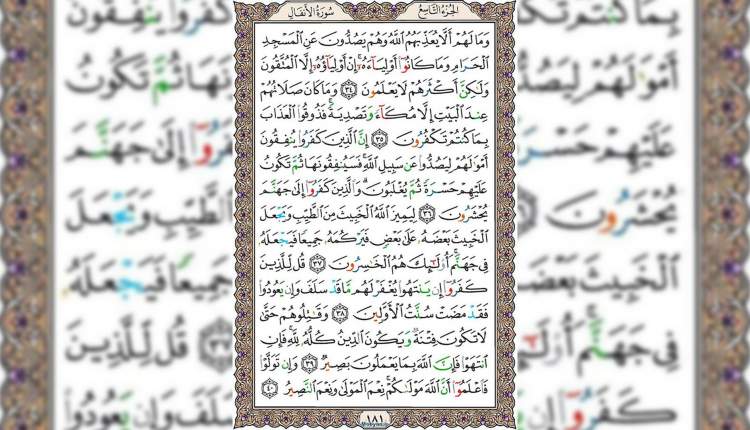 سُورَةُ الأَنفَالِ
الجُزءُ التَّاسِعُ
وَمَا لَهُمْ أَلَّا يُعَذِّبَهُمُ اللَّهُ وَهُمْ يَصُدُّونَ عَنِ الْمَسْجِدِ
الْحَرَامِ وَمَا كَانُوا أَوْلِيَاءَهُ إِنْ أَوْلِيَاؤُهُ إِلَّا الْمُتَّقُونَ
وَلَكِنَّ أَكْثَرَهُمْ لَا يَعْلَمُونَ ٣٤ وَمَا كَانَ صَلَاتُهُمْ
عِندَ الْبَيْتِ إِلَّا مُكَاءً وَتَصْدِيَةً فَذُوقُوا الْعَذَابَ
بِمَا كُنتُمْ تَكْفُرُونَ ٣٥ إِنَّ الَّذِينَ كَفَرُوا يُنفِقُونَ
أَمْوَالَهُمْ لِيَصُدُّوا عَن سَبِيلِ اللَّهِ فَسَيُنفِقُونَهَا ثُمَّ تَكُونُ
عَلَيْهِمْ حَسْرَةً ثُمَّ يُغْلَبُونَ وَالَّذِينَ كَفَرُوا إِلَى جَهَنَّمَ
يُحْشَرُونَ ٣٦ لِيَمِيزَ اللَّهُ الْخَبِيثَ مِنَ الطَّيِّبِ وَيَجْعَلَ
الْخَبِيثَ بَعْضَهُ عَلَى بَعْضٍ فَيَرْكُمَهُ جَمِيعًا فَيَجْعَلَهُ
فِي جَهَنَّمَ أُولَئِكَ هُمُ الْخَاسِرُونَ ٣٧ قُل لِّلَّذِينَ
كَفَرُوا إِن يَنتَهُوا يُغْفَرْ لَهُم مَّا قَدْ سَلَفَ وَإِن يَعُودُوا
فَقَدْ مَضَتْ سُنَّتُ الْأَوَّلِينَ ٣٨ وَقَاتِلُوهُمْ حَتَّى
لَا تَكُونَ فِتْنَةٌ وَيَكُونَ الدِّينُ كُلُّهُ لِلَّهِ فَإِنِ
انتَهَوْا فَإِنَّ اللَّهَ بِمَا يَعْمَلُونَ بَصِيرٌ ٣٩ وَإِن تَوَلَّوْا
فَاعْلَمُوا أَنَّ اللَّهَ مَوْلَاكُمْ نِعْمَ الْمَوْلَى وَنِعْمَ النَّصِيرُ ٤٠
١٨١